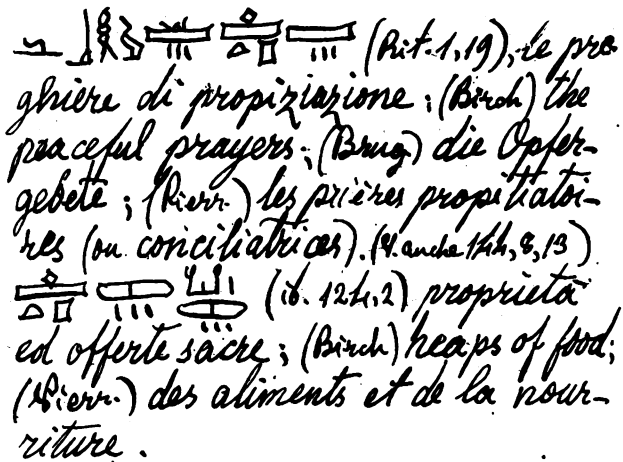 (Rit. 1, 19), le pre-
ghiere di propiziazione; (Birch) the
peaceful prayers; (Brug) die Opfer-
gebete; (Pierr.) les prières propitiatoi-
res (ou conciliatrices). (V. anche 144, 8, 13)
(ib. 124, 2) proprietà
ed offerte sacre; (Birch) heaps of food;
(Pierr.) des aliments et de la nour-
riture.